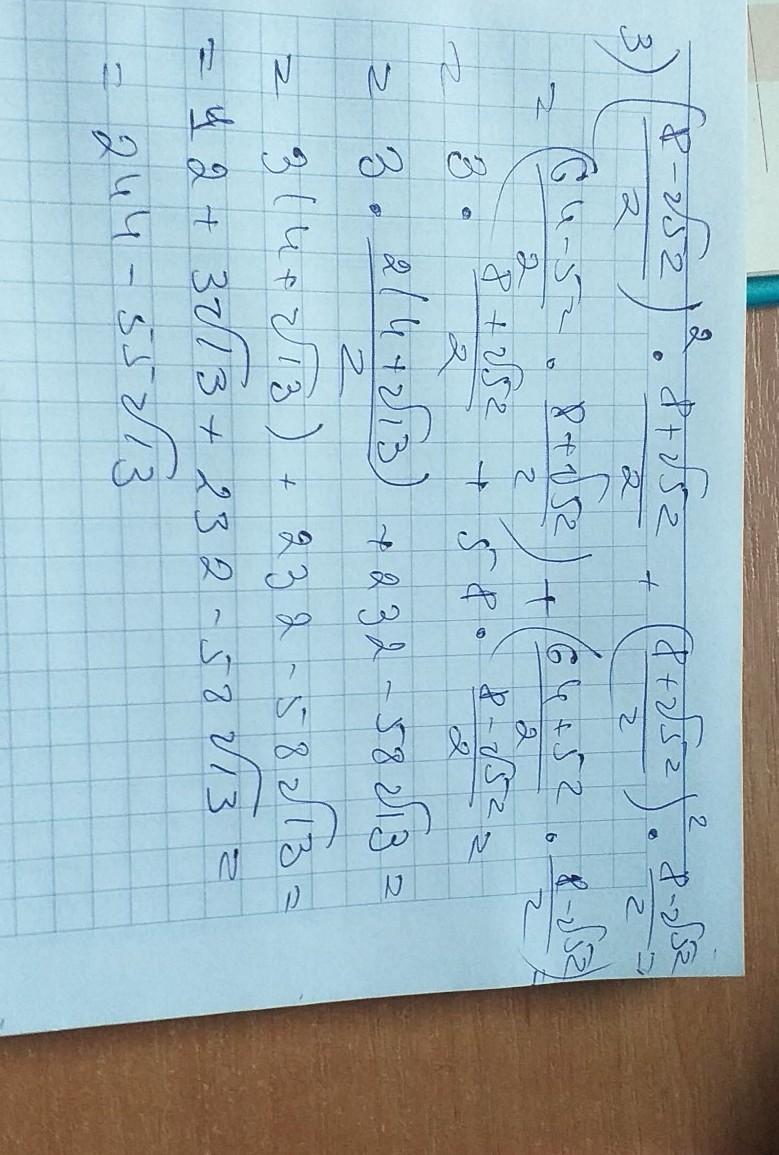 3) ((8-√52)/2)² · (8+√52)/2 + ((8+√52)/2)² · (8-√52)/2 =
= ((64-52)/2 · (8+√52)/2) + ((64+52)/2 · (8-√52)/2) =
= 3 · (8+√52)/2 + 58 · (8-√52)/2 =
= 3 · 2(4+√13)/2 + 232 - 58√13 =
= 3(4+√13) + 232 - 58√13 =
= 12 + 3√13 + 232 - 58√13 =
= 244 - 55√13